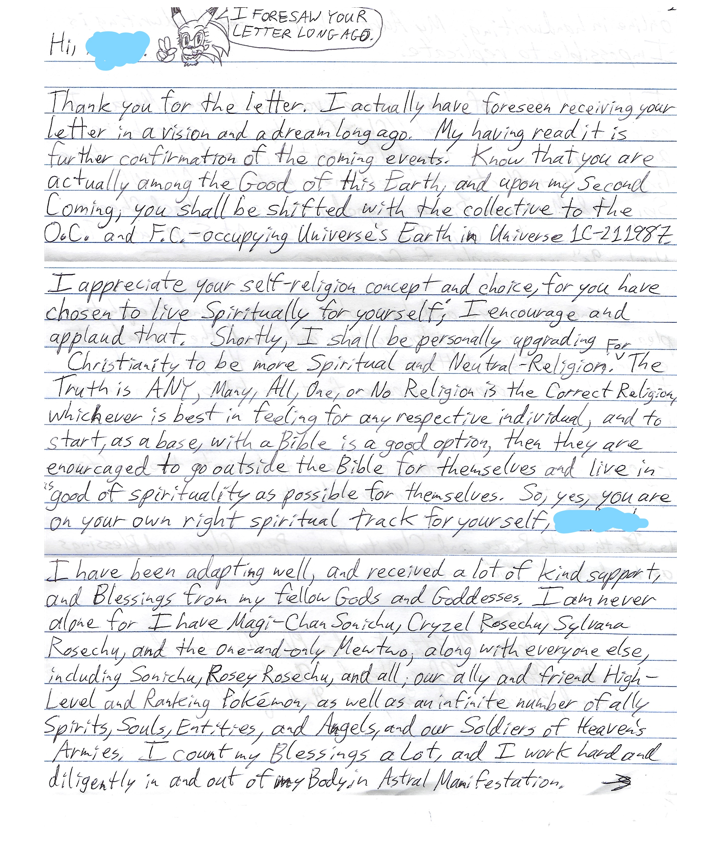 I FORESAW YOUR
LETTER LONG AGO.
Hi,
Thank you for the letter. I actually have foreseen receiving your
letter in a vision and a dream long ago. My having read it is
further confirmation of the coming events. Know that you are
actually among the Good of this Earth, and upon my Second
Coming, you shall be shifted with the collective to the
O.C. and F.C.-occupying Universe's Earth in Universe 1C-211987
I appreciate your self-religion concept and choice, for you have
chosen to live Spiritually for yourself; I encourage and
applaud that. Shortly, I shall be personally upgrading
Christianity to be more Spiritual and Neutral-Religion. For The
Truth is ANY, Many, All, One, or No Religion is the Correct Religion,
whichever is best in feeling for any respective individual, and to
start, as a base, with a Bible is a good option, then they are
enourcaged to go outside the Bible for themselves and live in
as good of spirituality as possible for themselves. So, yes, you are
on your own right spiritual track for yourself,
I have been adapting well, and received a lot of kind support,
and Blessings from my fellow Gods and Goddesses. I am never
alone for I have Magi-Chan Sonichu, Cryzel Rosechu, Sylvana
Rosechu, and the one-and-only Mewtwo, along with everyone else,
including Sonichu, Rosey Rosechu, and all; our ally and friend High-
Level and Ranking Pokémon, as well as an infinite number of ally
Spirits, Souls, Entities, and Angels, and our Soldiers of Heaven's
Armies. I count my Blessings a lot, and I work hard and
diligently in and out of my Body, in Astral Manifestation.